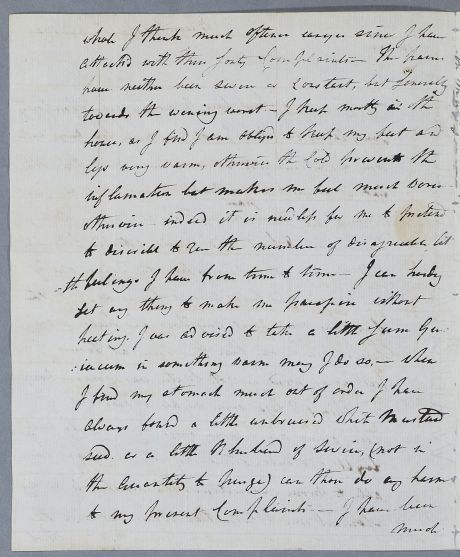 whole I think much oftener easyer since I have
attacked with these gouty Complaints — The pain
have neither been severe or Constant, but Generally
towards the evening worst — I keep mostly in the
house, as I find I am obliged to keep my feet and
legs very warm, otherwise the Cold prevents the
inflamation but makes me feel much worse
otherwise — indeed it is needless for me to pretend
to describe to you the number of disagreeable lit
-tle feelings I have from time to time — I can hardly
get any thing to make me perspire without
heating. I was advised to take a little Gum Gu-
:iacum in something warm may I do so, — when
I find my stomach much out of order I have
always found a little unbruised white Mustard
seed or a little Rhubarb of Service, (not in
the Quantity to purge) can these do any harm
to my present Complaints — I have been
much